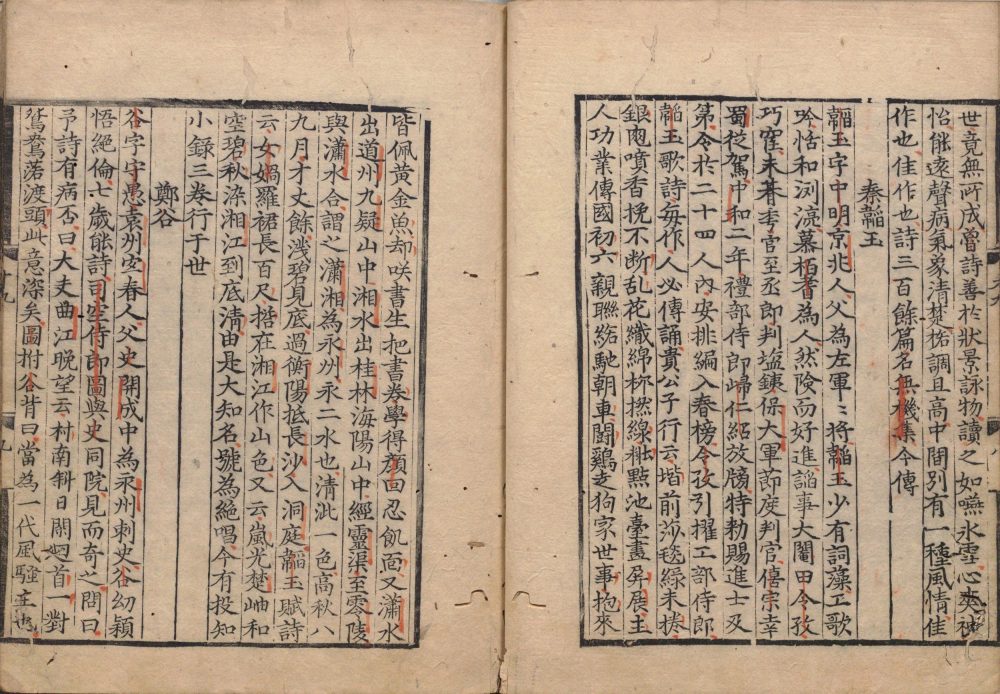 世竟無所成曾詩善於狀景詠物讀之如嚥氷雪心爽神
怡能遠聲病氣象清楚格調且高中間別有一種風情佳
作也佳作也詩三百餘篇名無機集今傳
秦韜玉
韜玉字中明京兆人父為左軍〻將韜玉少有詞藻工歌
吟恬和浏亮慕栢耆為人然險而好進謟事大閹田令孜
巧宦未朞季官至丞郎判塩銕保大軍節度判官僖宗幸
蜀從駕中和二年禮部侍郎歸仁紹放牓特勑賜進士及
第令於二十四人內安排編入春榜今孜引擢工部侍郎
韜玉歌詩每作人必傳誦貴公子行云堦前莎毯綠未捲
銀龜噴香挽不断乱花織綿柳撚線粧點池臺畫屏展主
人功業傳國初六親聯絡馳朝車鬪鷄走狗家世事抱來
皆佩黄金魚却咲書生把書卷學得顔回忍飢面又瀟水
出道州九疑山中湘水出桂林海陽山中經靈渠至零陵
與瀟水合謂之瀟湘為永州永二水也清泚一色高秋八
九月才丈餘浅碧見底過衡陽抵長沙入洞庭韜玉賦詩
云女媧羅裙長百尺搭在湘江作山色又云嵐光楚岫和
空碧秋染湘江到底清由是大知名號為絕唱今有投知
小錄三卷行于世
鄭谷
谷字守愚袁州宜春人父史開成中為永州刺史谷幼穎
悟絕倫七歲能詩司空侍郎圖與史同院見而奇之問曰
予詩有病否曰大夫曲江晚望云村南斜日閑廻首一對
鴛鴦落渡頭此意深矣圖拊谷背曰當為一代風騷主也